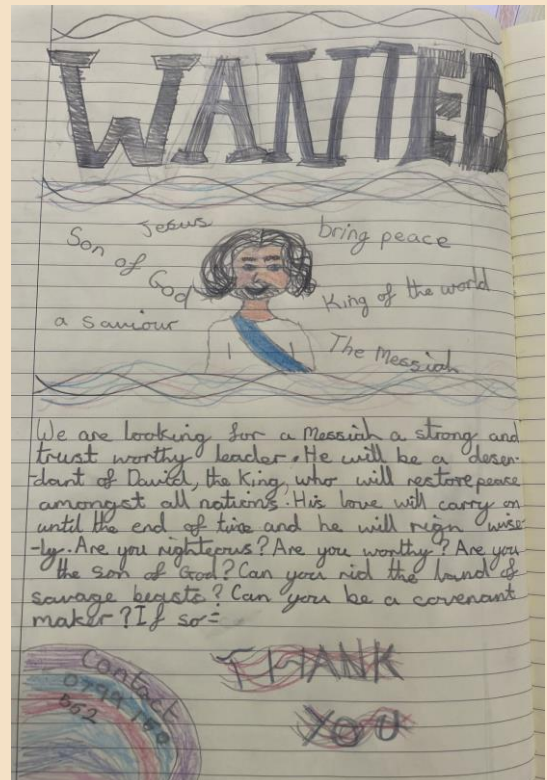 WANTED
Jesus
bring peace
Son of God
King of the world
a saviour
The Messiah
We are looking for a Messiah a strong and
trust worthy leader. He will be a desen-
-dant of David, the King, who will restore peace
amongst all nations. His love will carry on
until the end of time and he will reign wise-
-ly. Are you righteous? Are you worthy? Are you
the son of God? Can you rid the land of
savage beasts? Can you be a covenant
maker? If so:-
THANK
YOU
Contact
0799 160